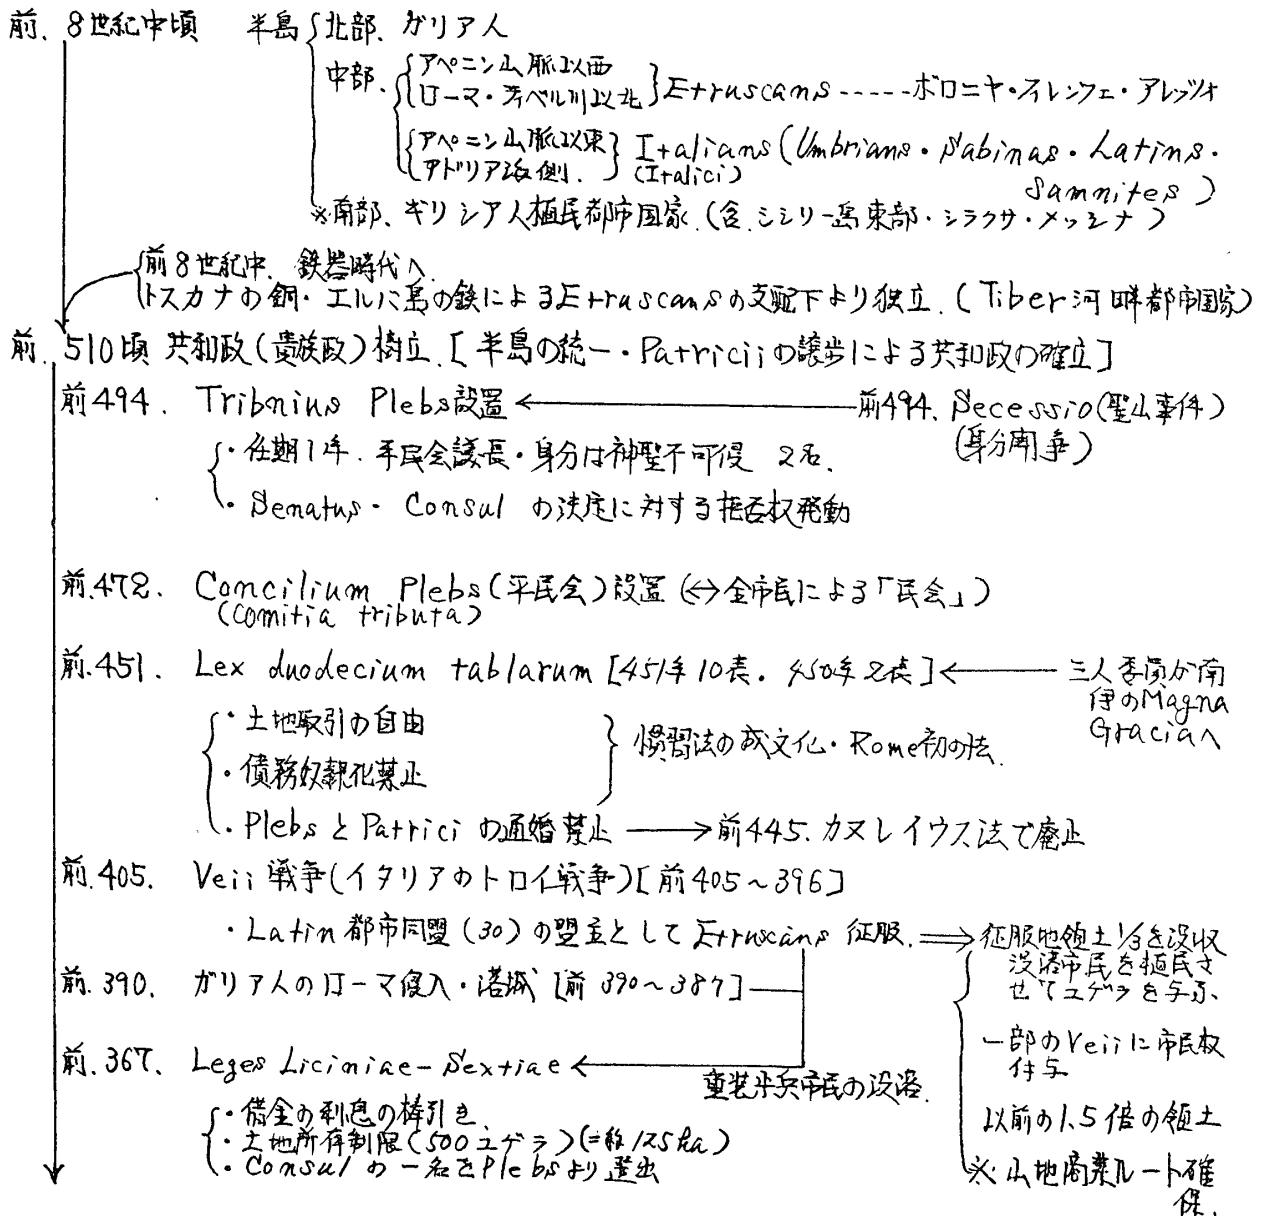 前. 8世紀中頃 半島 北部. ガリア人
中部. アペニン山脈以西
ローマ・ティベル川以北 Etruscans-----ボロニヤ・フィレンツェ・アレッツォ
アペニン山脈以東 Italians (Umbrians・Sabinas・Latins・
アドリア海側. (Italici) Samnites)
※南部. ギリシア人植民都市国家. (含. シシリー島東部・シラクサ・メッシナ)
前8世紀中. 鉄器時代へ.
トスカナの銅・エルバ島の鉄によるEtruscansの支配下より独立. (Tiber河畔都市国家)
前. 510頃 共和政(貴族政)樹立. [半島の統一・Patriciiの譲歩による共和政の確立]
前494. Tribnius Plebs設置 ← 前494. Secessio(聖山事件)
(身分闘争)
・任期1年. 平民会議長・身分は神聖不可侵 2名.
・Senatus・Consul の決定に対する拒否权発動
前.472. Concilium Plebs(平民会)設置 (↔全市民による「民会」)
(comitia tributa)
前.451. Lex duodecium tablarum [451年10表. 450年2表] ← 三人委員が南
伊のMagna
Graciaへ
・土地取引の自由
・債務奴隷化禁止 慣習法の成文化・Rome初の法.
・PlebsとPatriciの通婚禁止 → 前445. カヌレイウス法で廃止
前.405. Veii戦争(イタリアのトロイ戦争)[前405～396]
・Latin都市同盟(30)の盟主としてEtruscans征服. ⇒ 征服地領土1/3を没収
没落市民を植民さ
せて7ユゲラを与ふ.
前.390. ガリア人のローマ侵入・落城 [前390～387]
一部のVeiiに市民权
付与
前.367. Leges Liciniae-Sextiae ← 重装歩兵市民の没落.
・借金の利息の棒引き.
・土地所有制限(500ユゲラ)(=約125ha)
・Consulの一名をPlebsより選出
以前の1.5倍の領土
※. 山地商業ルート確
保.